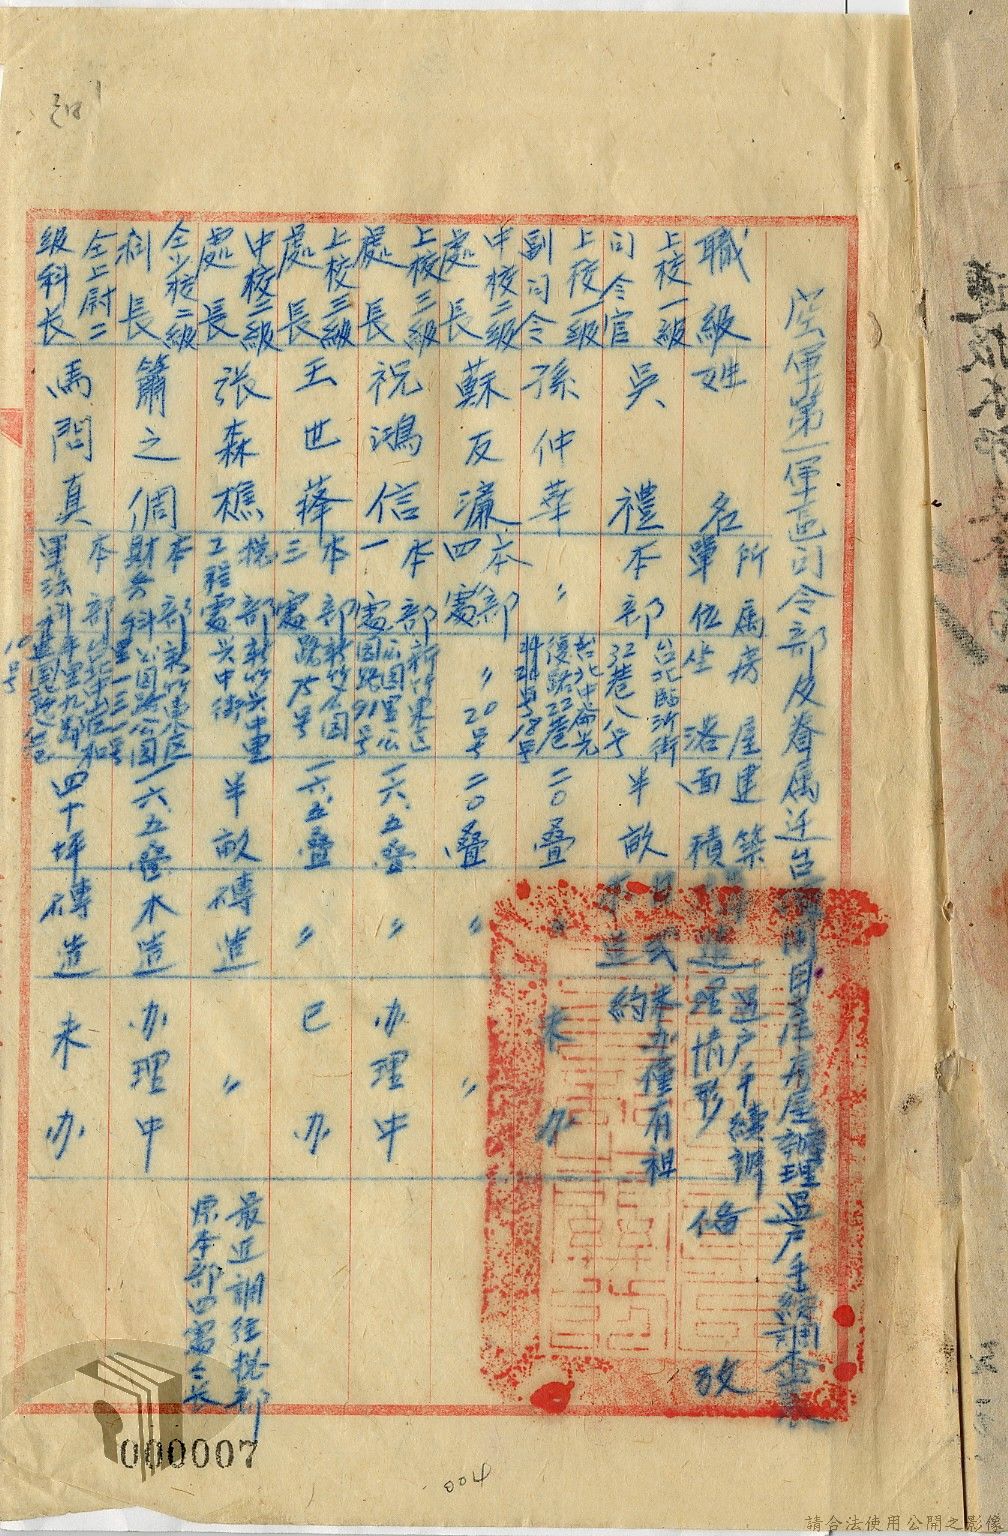 空軍第一軍區司令部及眷属迁台灣開日產房屋辦理過户手續調查表
職級
姓名
所属單位
房屋坐落
建築面積
構造
過户手續辦理情形
備攷
上校一級司令官
吳禮
本部
台北臨沂街32巷八号
半畝
日式木造
未办僅有祖約
上校一級副司令
孫仲華
〃
台北中崙光復路22巷
二〇疊
〃
未办
中校二級處長
蘇友濂
本部四處
〃20号
二〇疊
〃
〃
上校三級處長
祝鴻信
本部一處
新竹東區公園里公園路91号
一六.五疊
〃
办理中
上校三級處長
王世葎
本部三處
新竹公園路75号
一六.五疊
〃
已办
中校二級處長
張森樵
總部工程處
新竹兴中里兴中街
半畝
磚造
〃
最近調往總部原本部四處處長
仝少校二級科長
簫之倜
本部財务科
新竹東區公園路公園里一三一号
一六.五疊
木造
办理中
仝上尉二級科长
馬問真
本部軍法科
10号
四十坪
磚造
未办
000007
請合法使用公開之影像